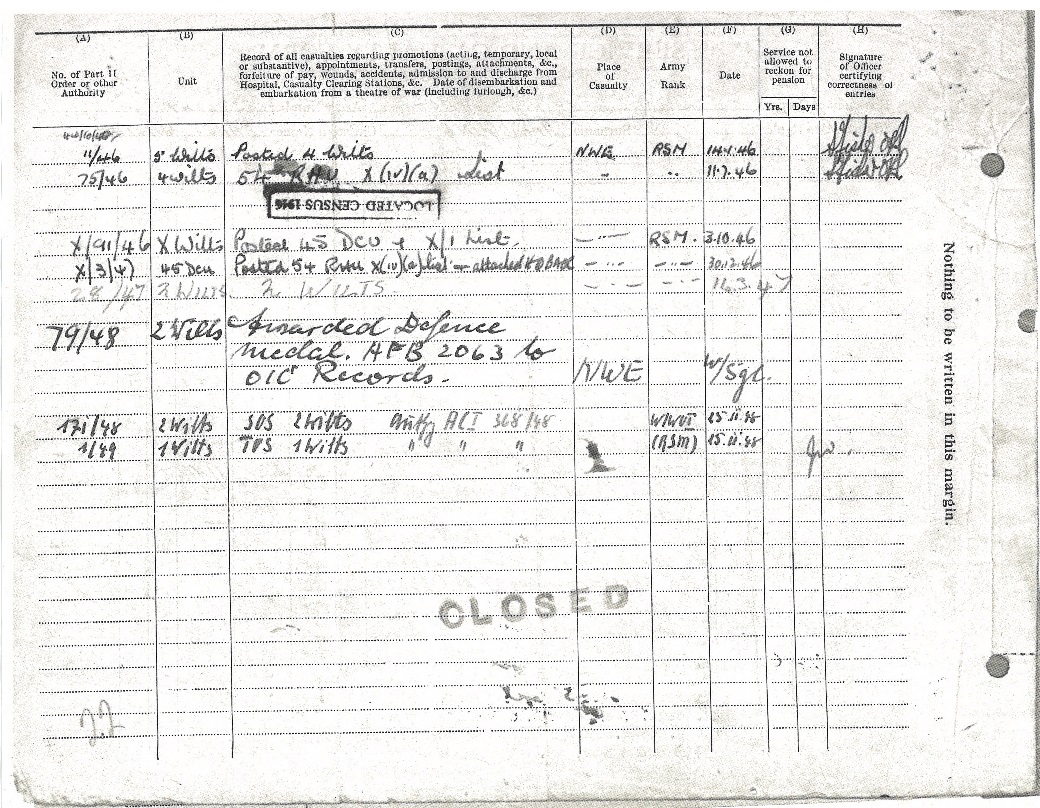 (A) (B) (C) (D) (E) (F) (G) (H)
No. of Part II Order or other Authority
Unit
Record of all casualties regarding promotions (acting, temporary, local
or substantive), appointments, transfers, postings, attachments, &c.,
forfeiture of pay, wounds, accidents, admission to and discharge from
Hospital, Casualty Clearing Stations, &c. Date of disembarkation and
embarkation from a theatre of war (including furlough, &c.)
Place of Casualty
Army Rank
Date
Service not allowed to reckon for pension
Yrs. Days
Signature of Officer certifying correctness of entries
11/46 5 Wilts Posted 4 Wilts NWE RSM 14.1.46
75/46 4 Wilts 54 RHU X(iv)(a) List - " 11.7.46
LOCATED CENSUS 1946
X/91/46 X Wilts Posted 45 DCU & X/1 List. - " - RSM. 3.10.46
X/3/47 45 DCU Posted 54 RHU X(iv)(a) list - attached - " - - " - 30.12.46
28/47 2 WILTS 2 WILTS. - " - - " - 11.3.47
79/48 2 Wilts Awarded Defence
medal. AFB 2063 to
OIC Records. NWE W/Sgt.
171/48 2 Wilts SOS 2 Wilts Auth ACI 368/48 W/WOI 25.11.48
1/49 1 Wilts TOS 1 Wilts " " " (RSM) 25.11.48
CLOSED
22
Nothing to be written in this margin.